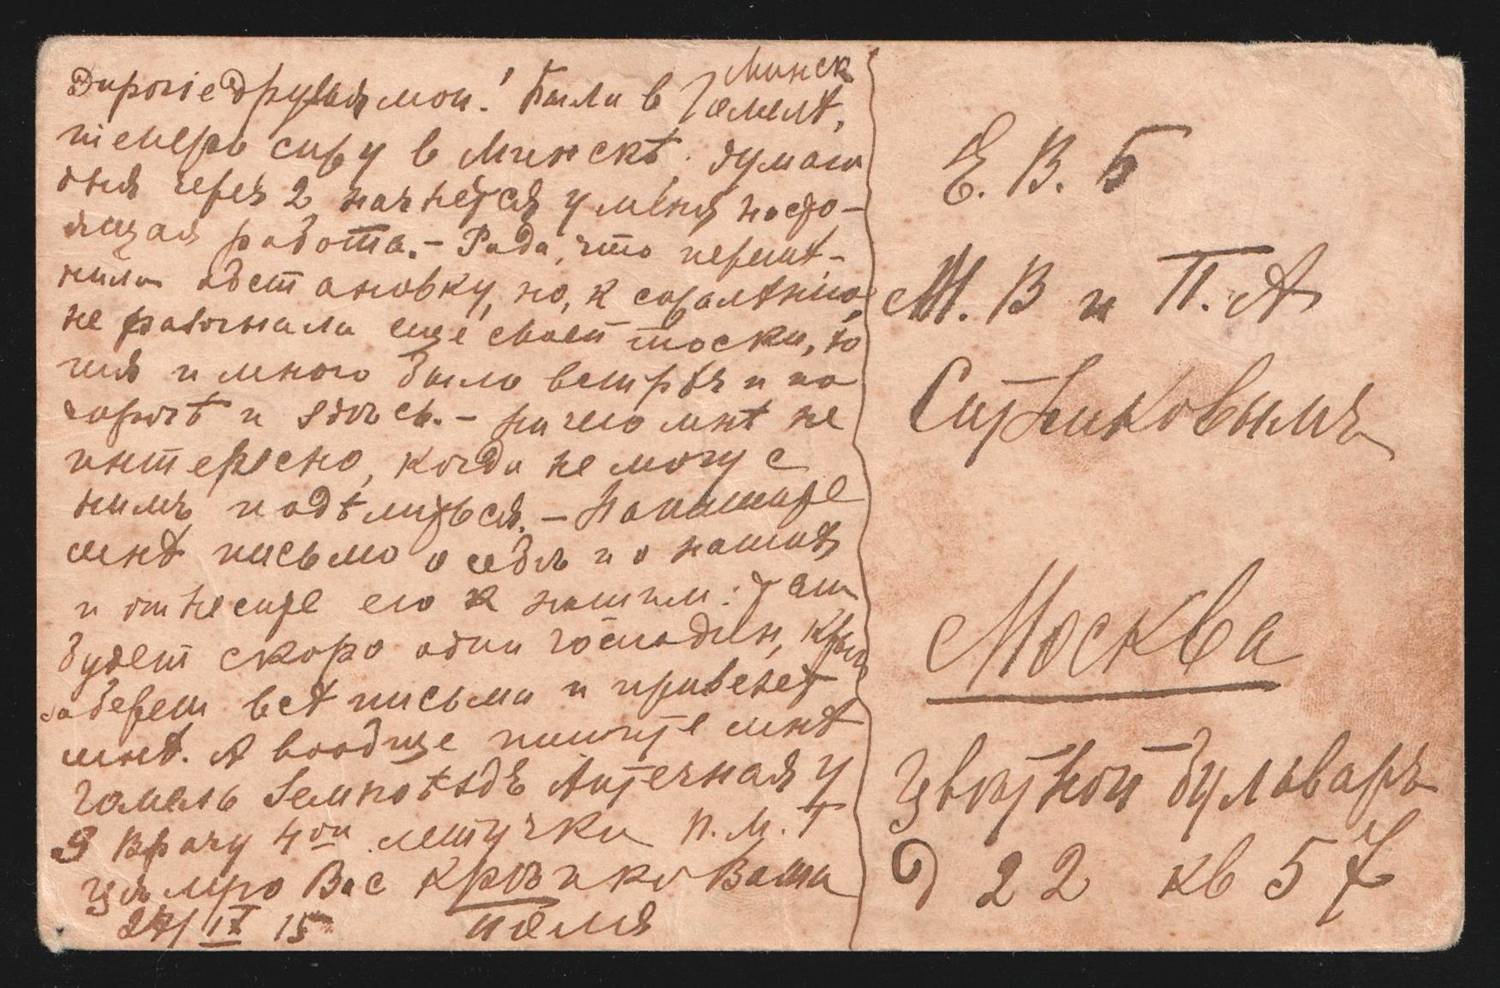 Минск
Дорогiе друзья мои! Были в Гомелѣ,
теперь сижу в Минскѣ. Думаю
дня черезъ 2 начнется у меня насто-
ящая работа. — Рада, что перемѣ-
нила обстановку, но, к сожалѣнию,
не разогнала еще своей тоски, хо
тя и много было встрѣч и по
дорогѣ и здѣсь. — Ничего мнѣ не
интересно, когда не могу с
нимъ подѣлиться. — Напишите
мнѣ письмо о себѣ и о нашихъ
и отнесите его к нашим: там
будет скоро один господин, кот
заберет всѣ письма и привезет
мнѣ. А вообще пишите мнѣ
Гомель Земпоѣздъ Аптечная у
9 Врачу 4ой летучки П. М. Т
Цѣлую Вас крѣпко Ваша
27/IX 15 Леля
Е. В. Б
М. В и П. А
Ситниковымъ
Москва
Цвѣтной бульваръ
д 22 кв 57